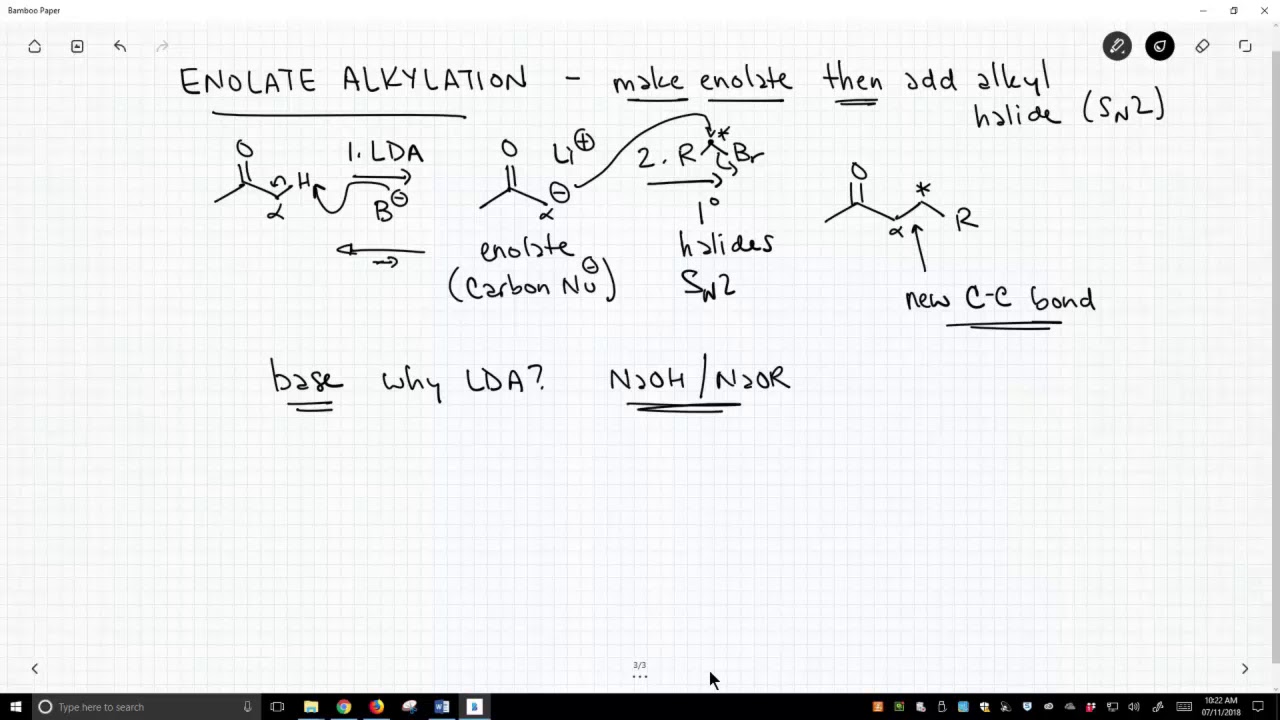 Bamboo Paper
ENOLATE ALKYLATION - make enolate then add alkyl
halide (SN2)
O
H
α
1. LDA
B⊖
O
Li⊕
⊖
α
enolate
(Carbon Nu⊖)
2. R * Br
1°
halides
SN2
O
*
α
R
new C-C bond
base why LDA? NaOH / NaOR
3/3
Type here to search
10:22 AM
07/11/2018